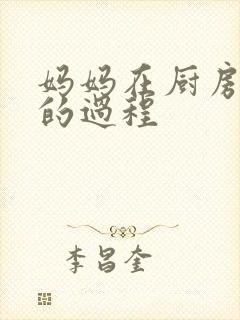 妈妈在厨房
的过程
李昌奎